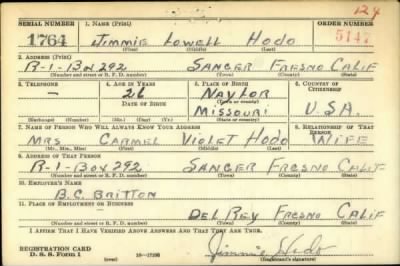 124
SERIAL NUMBER 1. NAME (Print) ORDER NUMBER
1764 JIMMIE LOWELL HODO 5147
(First) (Middle) (Last)
2. ADDRESS (Print)
R-1-BOX 292 SANGER FRESNO CALIF
(Number and street or R. F. D. number) (Town) (County) (State)
3. TELEPHONE 4. AGE IN YEARS 5. PLACE OF BIRTH 6. COUNTRY OF CITIZENSHIP
— 26 NAYLOR
DATE OF BIRTH (Town or county)
MISSOURI U.S.A.
(Exchange) (Number) (Mo.) (Day) (Yr.) (State or country)
7. NAME OF PERSON WHO WILL ALWAYS KNOW YOUR ADDRESS 8. RELATIONSHIP OF THAT PERSON
MRS CARMEL VIOLET HODO WIFE
(Mr., Mrs., Miss) (First) (Middle) (Last)
9. ADDRESS OF THAT PERSON
R-1-BOX 292 SANGER FRESNO CALIF
(Number and street or R. F. D. number) (Town) (County) (State)
10. EMPLOYER'S NAME
B.C. BRITTON
11. PLACE OF EMPLOYMENT OR BUSINESS
DEL REY FRESNO CALIF
(Number and street or R. F. D. number) (Town) (County) (State)
I AFFIRM THAT I HAVE VERIFIED ABOVE ANSWERS AND THAT THEY ARE TRUE.
REGISTRATION CARD
D. S. S. Form 1 16—17105 Jimmie Hodo
(Registrant's signature)